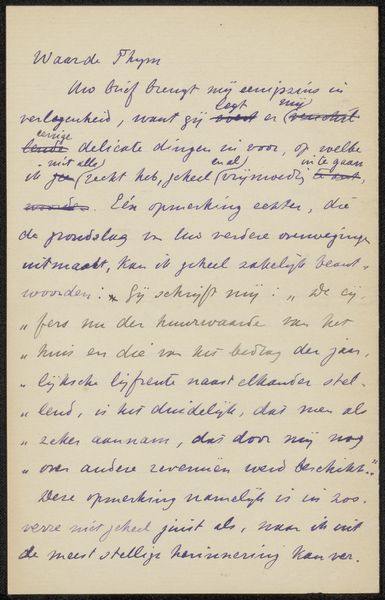 Waarde Thym
Uw brief brengt mij eenigszins in
legt mij
verlegenheid, want gij er
eenige
delicate dingen in voor, op welke
niet alle en al in te gaan
ik recht heb, geheel vrijmoedig
Eén opmerking echter, die
de grondslag van Uw verdere overwegingen
uitmaakt, kan ik geheel zakelijk beant-
woorden: Gij schrijft mij: „De cij-
„fers nu der huurwaarde van het
„huis en die van het bedrag der jaar-
„lijksche lijfrente naast elkander stel-
„lend, is het duidelijk, dat men als
„zeker aannam, dat door mij nog
„over andere revenuën werd beschikt."
Deze opmerking namelijk is in zoo-
verre niet geheel juist als, naar ik uit
de meest stellige herinnering kan ver-